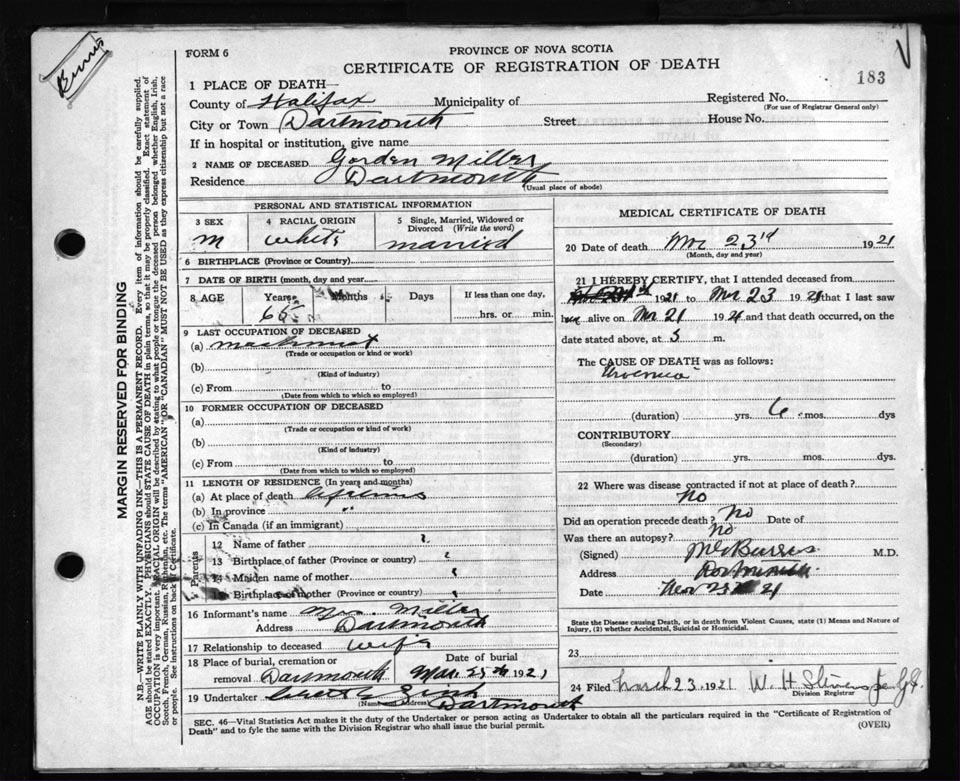 Burris
FORM 6
PROVINCE OF NOVA SCOTIA
CERTIFICATE OF REGISTRATION OF DEATH
183
MARGIN RESERVED FOR BINDING
N.B.—WRITE PLAINLY WITH UNFADING INK—THIS IS A PERMANENT RECORD. Every item of information should be carefully supplied.
AGE should be stated EXACTLY. PHYSICIANS should STATE CAUSE OF DEATH in plain terms, so that it may be properly classified. Exact statement of
OCCUPATION is very important. RACIAL ORIGIN will be described by stating to what people or tongue the deceased person belonged whether English, Irish,
Scotch, French, German, Russian, Ruthenian, etc. The terms "AMERICAN" OR "CANADIAN" MUST NOT BE USED as they express citizenship but not a race
or people. See instructions on back of Certificate.
1 PLACE OF DEATH—
County of Halifax Municipality of Registered No.
(For use of Registrar General only)
City or Town Dartmouth Street House No.
If in hospital or institution, give name
2 NAME OF DECEASED Gorden Miller
Residence Dartmouth
(Usual place of abode)
PERSONAL AND STATISTICAL INFORMATION
3 SEX 4 RACIAL ORIGIN 5 Single, Married, Widowed or
Divorced (Write the word)
M white married
6 BIRTHPLACE (Province or Country)
7 DATE OF BIRTH (month, day and year
8 AGE Years Months Days If less than one day,
65 hrs. or min.
9 LAST OCCUPATION OF DECEASED
(a) machinist
(Trade or occupation or kind or work)
(b)
(Kind of industry)
(c) From to
(Date from which to which so employed)
10 FORMER OCCUPATION OF DECEASED
(a)
(Trade or occupation or kind of work)
(b)
(Kind of industry)
(c) From to
(Date from which to which so employed)
11 LENGTH OF RESIDENCE (In years and months)
(a) At place of death
(b) In province "
(c) In Canada (if an immigrant)
Parents
12 Name of father
13 Birthplace of father (Province or country)
14 Maiden name of mother
15 Birthplace of mother (Province or country)
16 Informant's name Mrs. Miller
Address Dartmouth
17 Relationship to deceased wife
18 Place of burial, cremation or
removal Dartmouth
Date of burial
Mar. 25th 1921
19 Undertaker
(Name and Address) Dartmouth
MEDICAL CERTIFICATE OF DEATH
20 Date of death Mar 23rd 1921
(Month, day and year)
21 I HEREBY CERTIFY, that I attended deceased from
1921 to Mar 23 1921 that I last saw
him alive on Mar 21 1921 and that death occurred, on the
date stated above, at 5 m.
The CAUSE OF DEATH was as follows:
Uraemia
(duration) yrs. 6 mos. dys
CONTRIBUTORY
(Secondary)
(duration) yrs. mos. dys.
22 Where was disease contracted if not at place of death?
No
Did an operation precede death? No Date of
Was there an autopsy? No
(Signed) Burris M.D.
Address Dartmouth
Date Mar 23 21
State the Disease causing Death, or in death from Violent Causes, state (1) Means and Nature of
Injury, (2) whether Accidental, Suicidal or Homicidal.
23
24 Filed March 23 1921 W. H.
Division Registrar
SEC. 46—Vital Statistics Act makes it the duty of the Undertaker or person acting as Undertaker to obtain all the particulars required in the "Certificate of Registration of
Death" and to fyle the same with the Division Registrar who shall issue the burial permit.
(OVER)